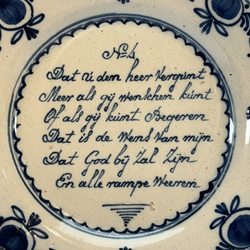 No 4
Dat ú dem heer Vergunt
Meer als gij wenschen kúnt
Of als gij kúnt Begeren
Dat is de Wens Van mijn
Dat God bij Zal Zijn
En alle rampe Weeren